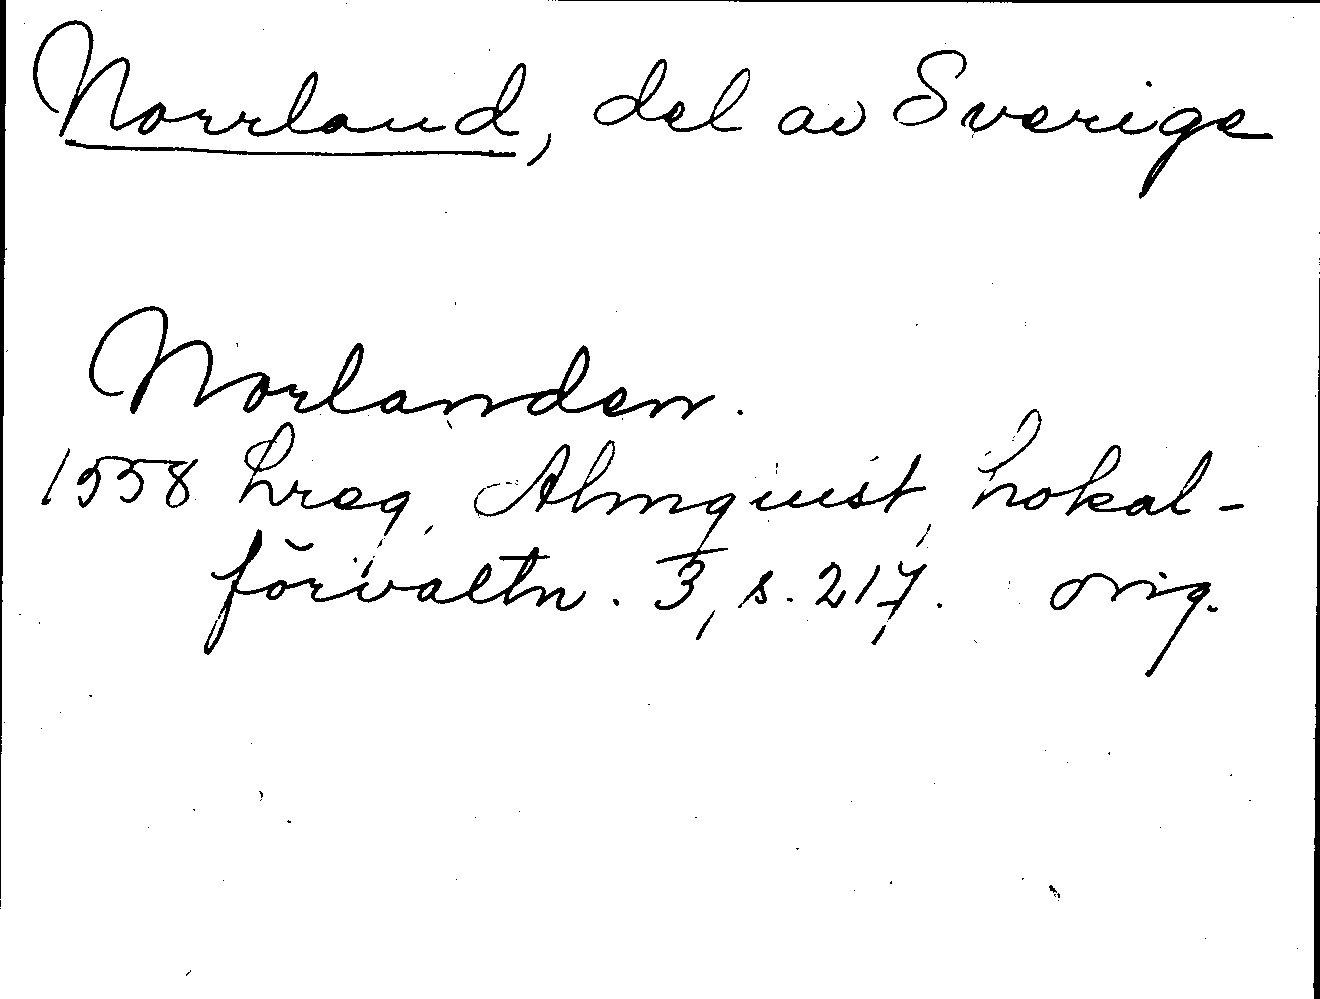 Norrland, del av Sverige
Norlanden.
1558 Lreg, Almquist, Lokal-
förvaltn. 3, s. 217. orig.